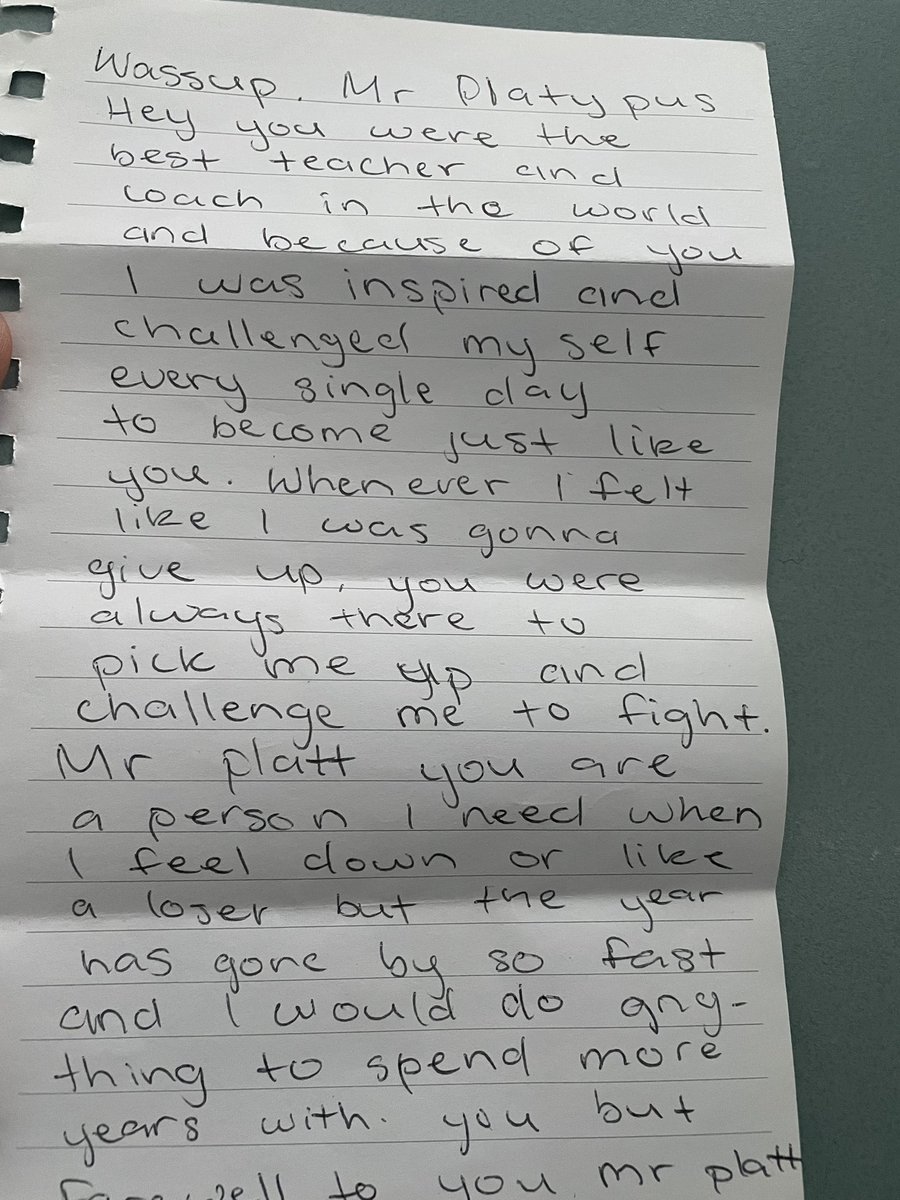 Wassup. Mr Platypus
Hey you were the
best teacher and
coach in the world
and because of you
I was inspired and
challenged my self
every single day
to become just like
you. Whenever I felt
like I was gonna
give up, you were
always there to
pick me up and
challenge me to fight.
Mr platt you are
a person I need when
I feel down or like
a loser but the year
has gone by so fast
and I would do any-
thing to spend more
years with. you but
Farewell to you mr platt